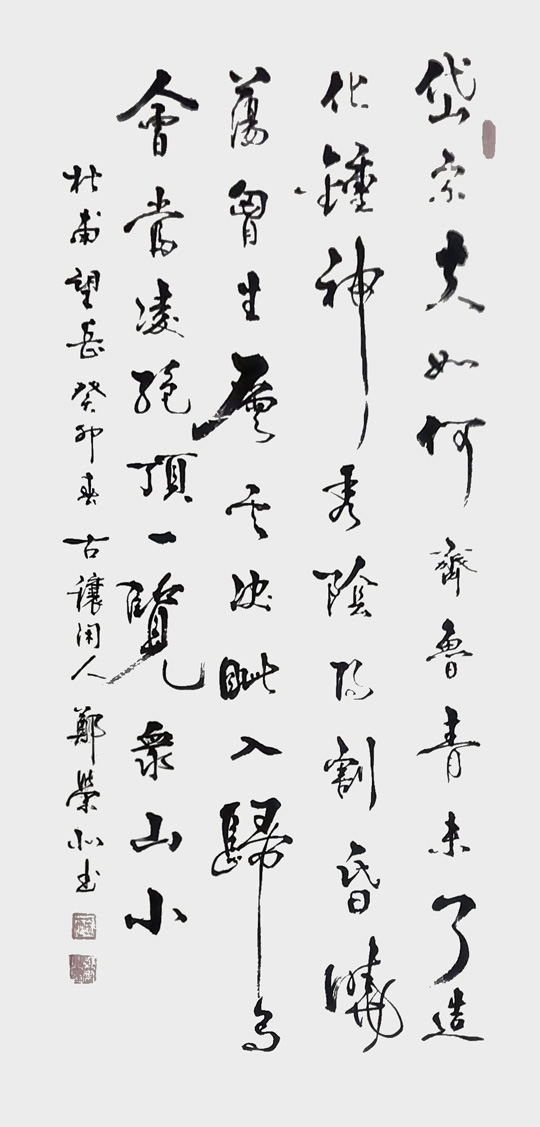 岱宗夫如何齊魯青未了造
化鍾神秀陰陽割昏曉
蕩胷生層雲決眦入歸鳥
會當凌絕頂一覽衆山小
杜甫望岳癸卯春古讓閑人鄭榮書